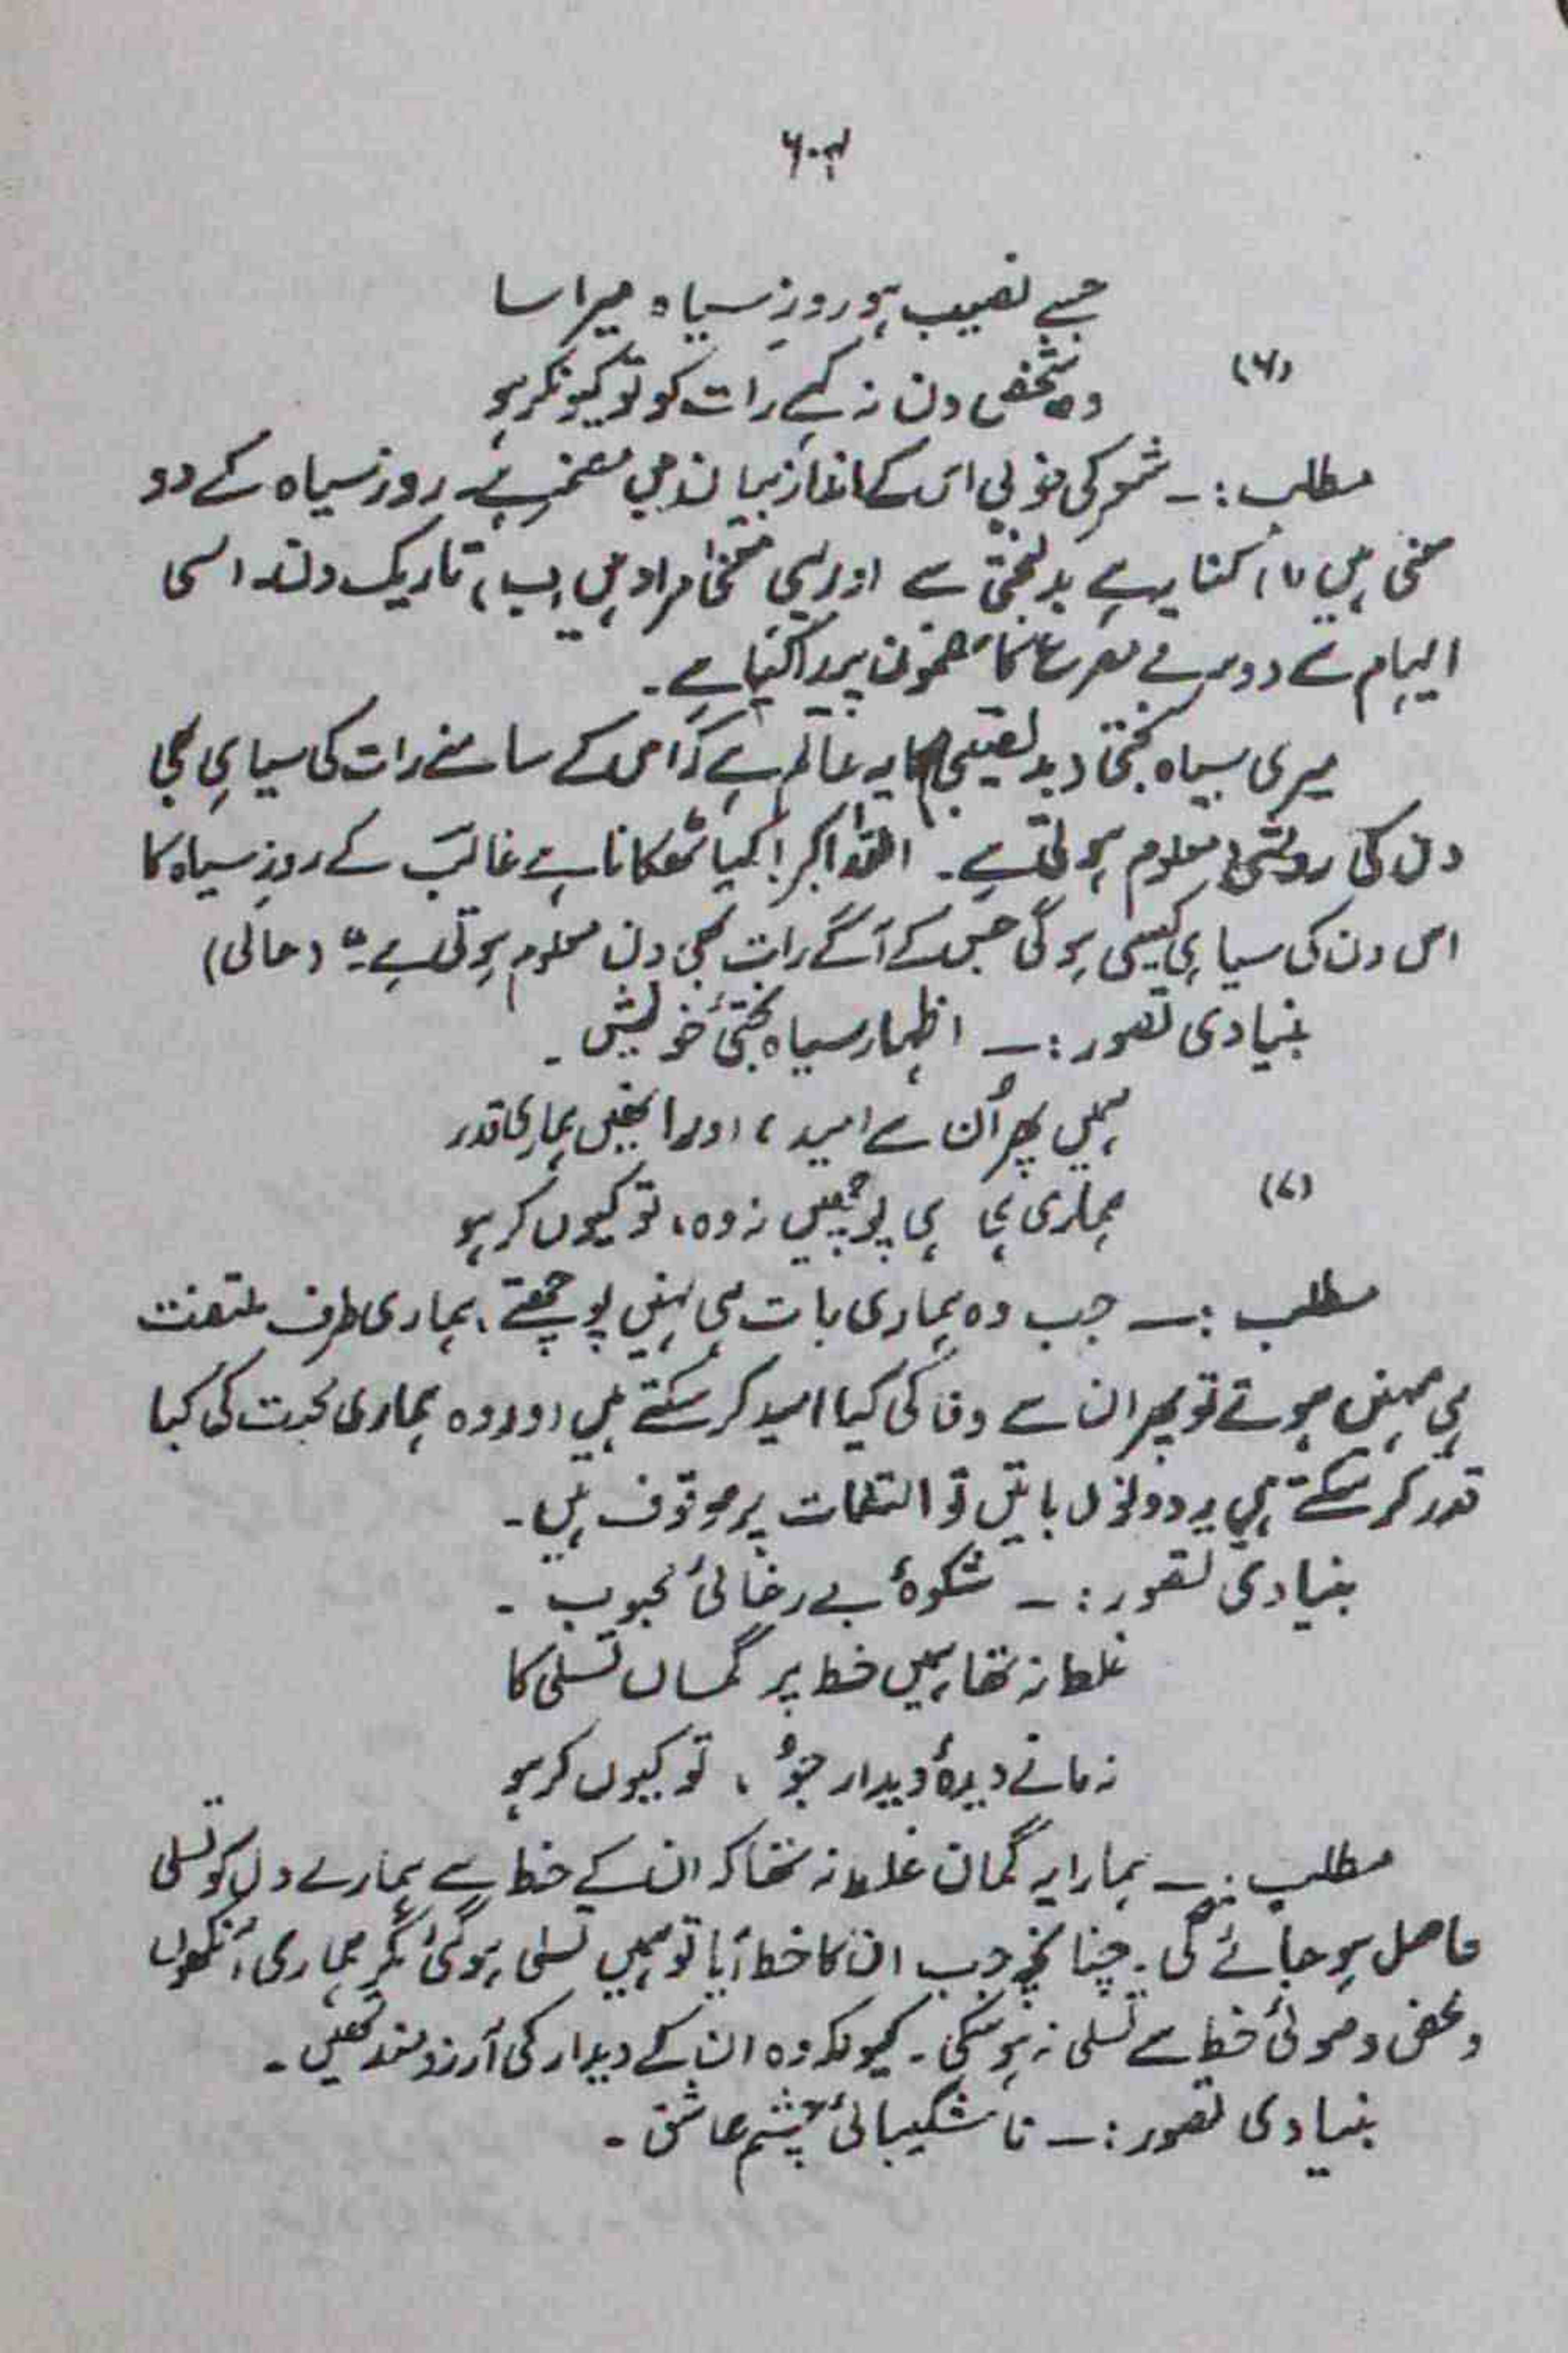 ۶۰۳
جسے نصیب ہو روزِ سیاہ میرا سا
(۶)
وہ شخص دن نہ کہے رات کو تو کیونکر ہو
مطلب :۔ شعر کی خوبی اس کے انداز بیان میں مضمر ہے۔ روز سیاہ کے دو
معنی ہیں (۱) کنایہ ہے بدبختی سے اور یہی معنی مراد ہیں (ب) تاریک دن۔ اسی
ایہام سے دوسرے مصرع کا مضمون پیدا کیا ہے۔
میری سیاہ بختی و بدنصیبی کا یہ عالم ہے کہ اس کے سامنے رات کی سیاہی بھی
دن کی روشنی معلوم ہوتی ہے۔ اللہ اکبر! کیا ٹھکانا ہے غالب کے روزِ سیاہ کا
اس دن کی سیاہی کیسی ہوگی جس کے آگے رات بھی دن معلوم ہوتی ہے۔" (حالی)
بنیادی تصور :۔ اظہار سیاہ بختیٔ خویش۔
ہمیں پھر اُن سے امید، اور انھیں ہماری قدر
(۷)
ہماری ہی پوچھیں نہ وہ، تو کیوں کر ہو
مطلب :۔ جب وہ ہماری بات ہی نہیں پوچھتے، ہماری طرف ملتفت
ہی نہیں ہوتے تو پھر ان سے وفا کی کیا امید کر سکتے ہیں اور وہ ہماری محبت کی کیا
قدر کر سکتے ہیں یہ دونوں باتیں تو التفات پر موقوف ہیں۔
بنیادی تصور :۔ شکوۂ بے رخائیٔ محبوب۔
غلط نہ تھا ہمیں خط پر گماں تسلی کا
نہ مانے دیدۂ دیدار جُو، تو کیوں کر ہو
مطلب :۔ ہمارا یہ گمان غلط نہ تھا کہ ان کے خط سے ہمارے دل کو تسلی
حاصل ہو جائے گی۔ چنانچہ جب ان کا خط آیا تو ہمیں تسلی ہو گئی مگر ہماری آنکھوں
کو محض وصولیٔ خط سے تسلی نہ ہو سکی۔ کیونکہ وہ ان کے دیدار کی آرزو مند تھیں۔
بنیادی تصور :۔ ناشکیبائیٔ چشم عاشق۔